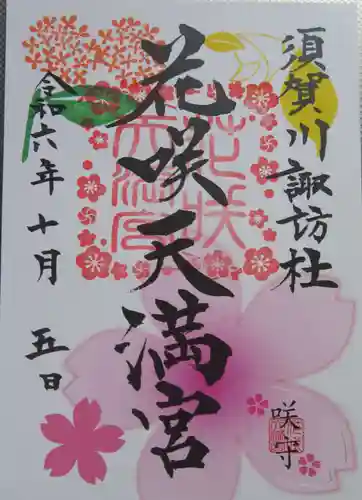 須賀川諏訪社
花咲天満宮
花咲
天満宮
令和六年十月五日
咲守